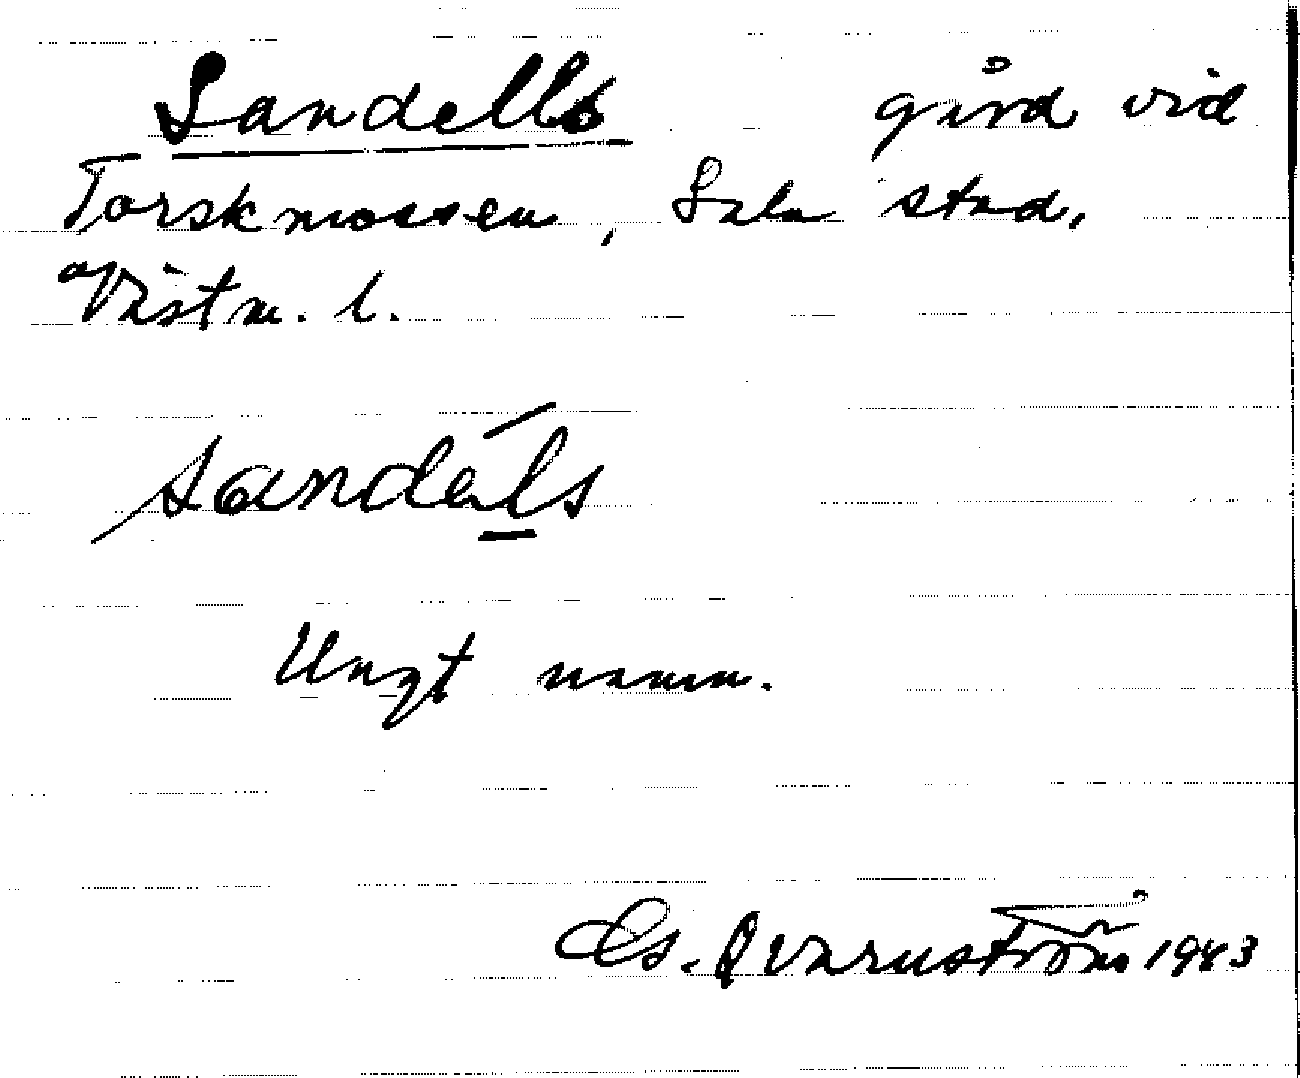 Sandells gård vid
Torskmossen, Sala stad,
Västm. l.
sandéls
Ungt namn.
Es. Qvarnström 1943